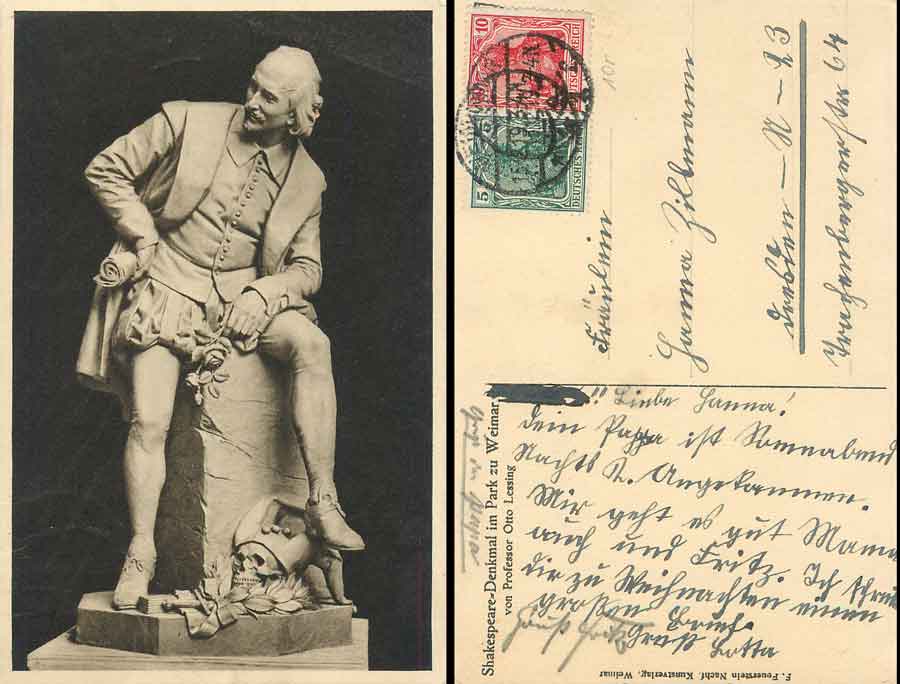 10
DEUTSCHES REICH
5
DEUTSCHES REICH
Fräulein
Hanna
Dresden – N – 23
64
Liebe Hanna!
dein Pappa ist Sonnabend
Nachts 2. Angekommen.
Mir geht es gut Mama
auch und Fritz. Ich schrei
dir zu Weihnachten einen
großen Brief.
Gruß Lotta
Gruß Fritz
Shakespeare-Denkmal im Park zu Weimar
von Professor Otto Lessing
F. Feuerstein Nachf. Kunstverlag, Weimar